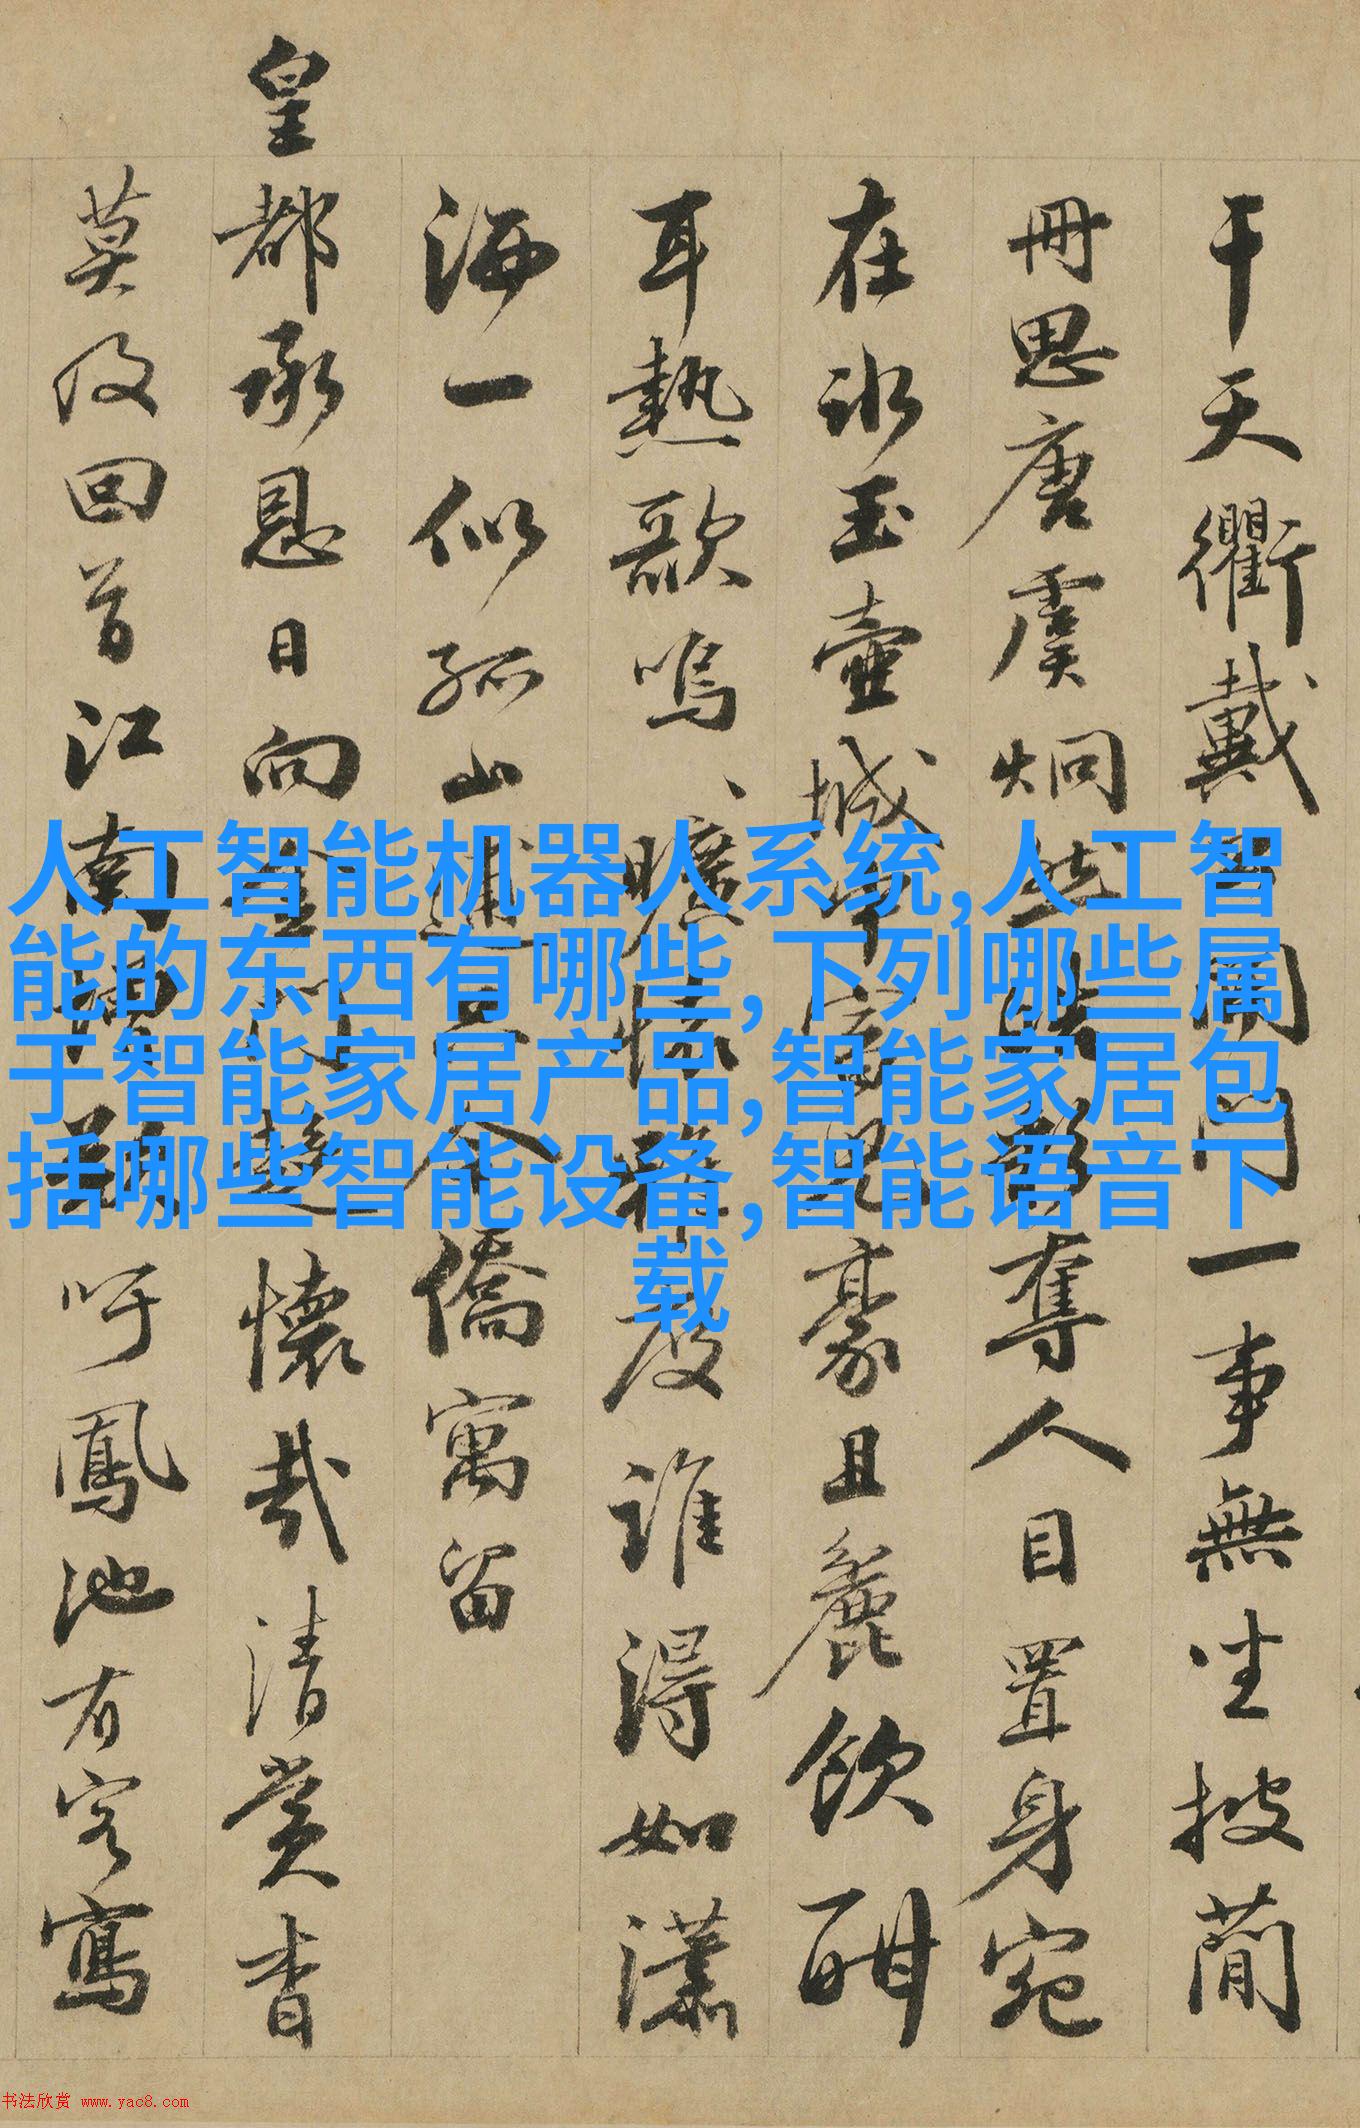 干天衢戴
一事無坐披簡
冊思唐虞炯
奪人目置身宛
在冰玉壺城
豪且麄飲酣
耳熱歌嗚、曠懷
度誰得如瀟
洒一似孤山逋
今僑寓留
皇都承恩日向金
趍懷哉清賞音
莫及回首江南
吁鳳池有客寫
人工智能机器人系统,人工智
能的东西有哪些,下列哪些属
于智能家居产品,智能家居包
括哪些智能设备,智能语音下
载
书法欣赏 www.yac8.com